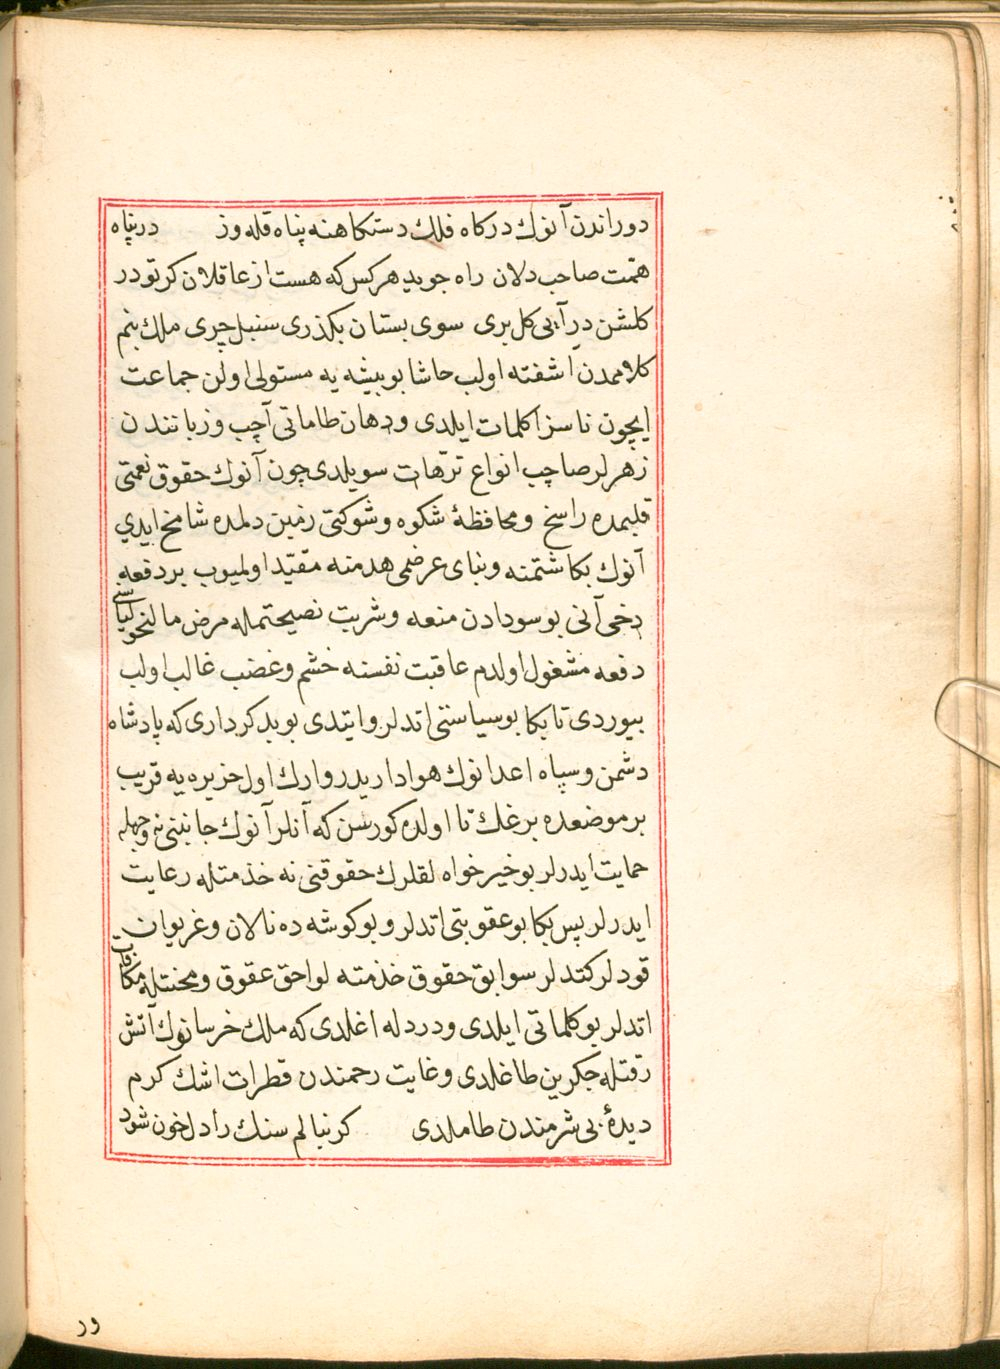 دوراندن آنوك دركاه فلك دستكاهنه پناه قله وز در پناه
همّت صاحب دلان راه جويد هركس كه هست از عاقلان كر تو در
كلشن درآيى كل برى سوى بستان بكذرى سنبل چرى ملك بنم
كلاممدن اشفته اولب حاشا بو بيشه يه مستولى اولن جماعت
ايچون ناسزا كلمات ايلدى و دهان طاماتى آچب و زبانندن
زهرلر صاچب انواع ترّهات سويلدى چون آنوك حقوق نعمتى
قلبمده راسخ و محافظهٔ شكوه و شوكتى زمين دلمده شامخ ايدي
آنوك بكا شتمنه و بناى عرضمى هدمنه مقيّد اولميوب بر دفعه
دخى آنى بو سودادن منعه و شربت نصيحتمله مرض مالنخولياسى
دفعه مشغول اولدم عاقبت نفسنه خشم و غضب غالب اولب
بيوردى تا بكا بو سياستى اتدلر و ايتدى بو بدكردارى كه پادشاه
دشمن و سپاه اعدانوك هوادار يدر وارك اول جزيره يه قريب
بر موضعده برغك تا اولده كورسن كه آنلر آنوك جانبنى نه وجهله
حمايت ايدرلر بو خيرخواه لقلرك حقوقنى نه خذمتله رعايت
ايدرلر پس بكا بو عقوبتى اتدلر و بو كوشه ده نالان و غريوان
قودلر كتدلر سوابق حقوق خذمته لواحق عقوق و محنتله مكافات
اتدلر بو كلماتى ايلدى و دردله اغلدى كه ملك خرسانوك آتش
رقتله جكرين طاغلدى و غايت رحمندن قطرات اشك كرم
ديدهٔ بى شرمندن طاملدى كر بنالم سنك را دل خون شود
ور